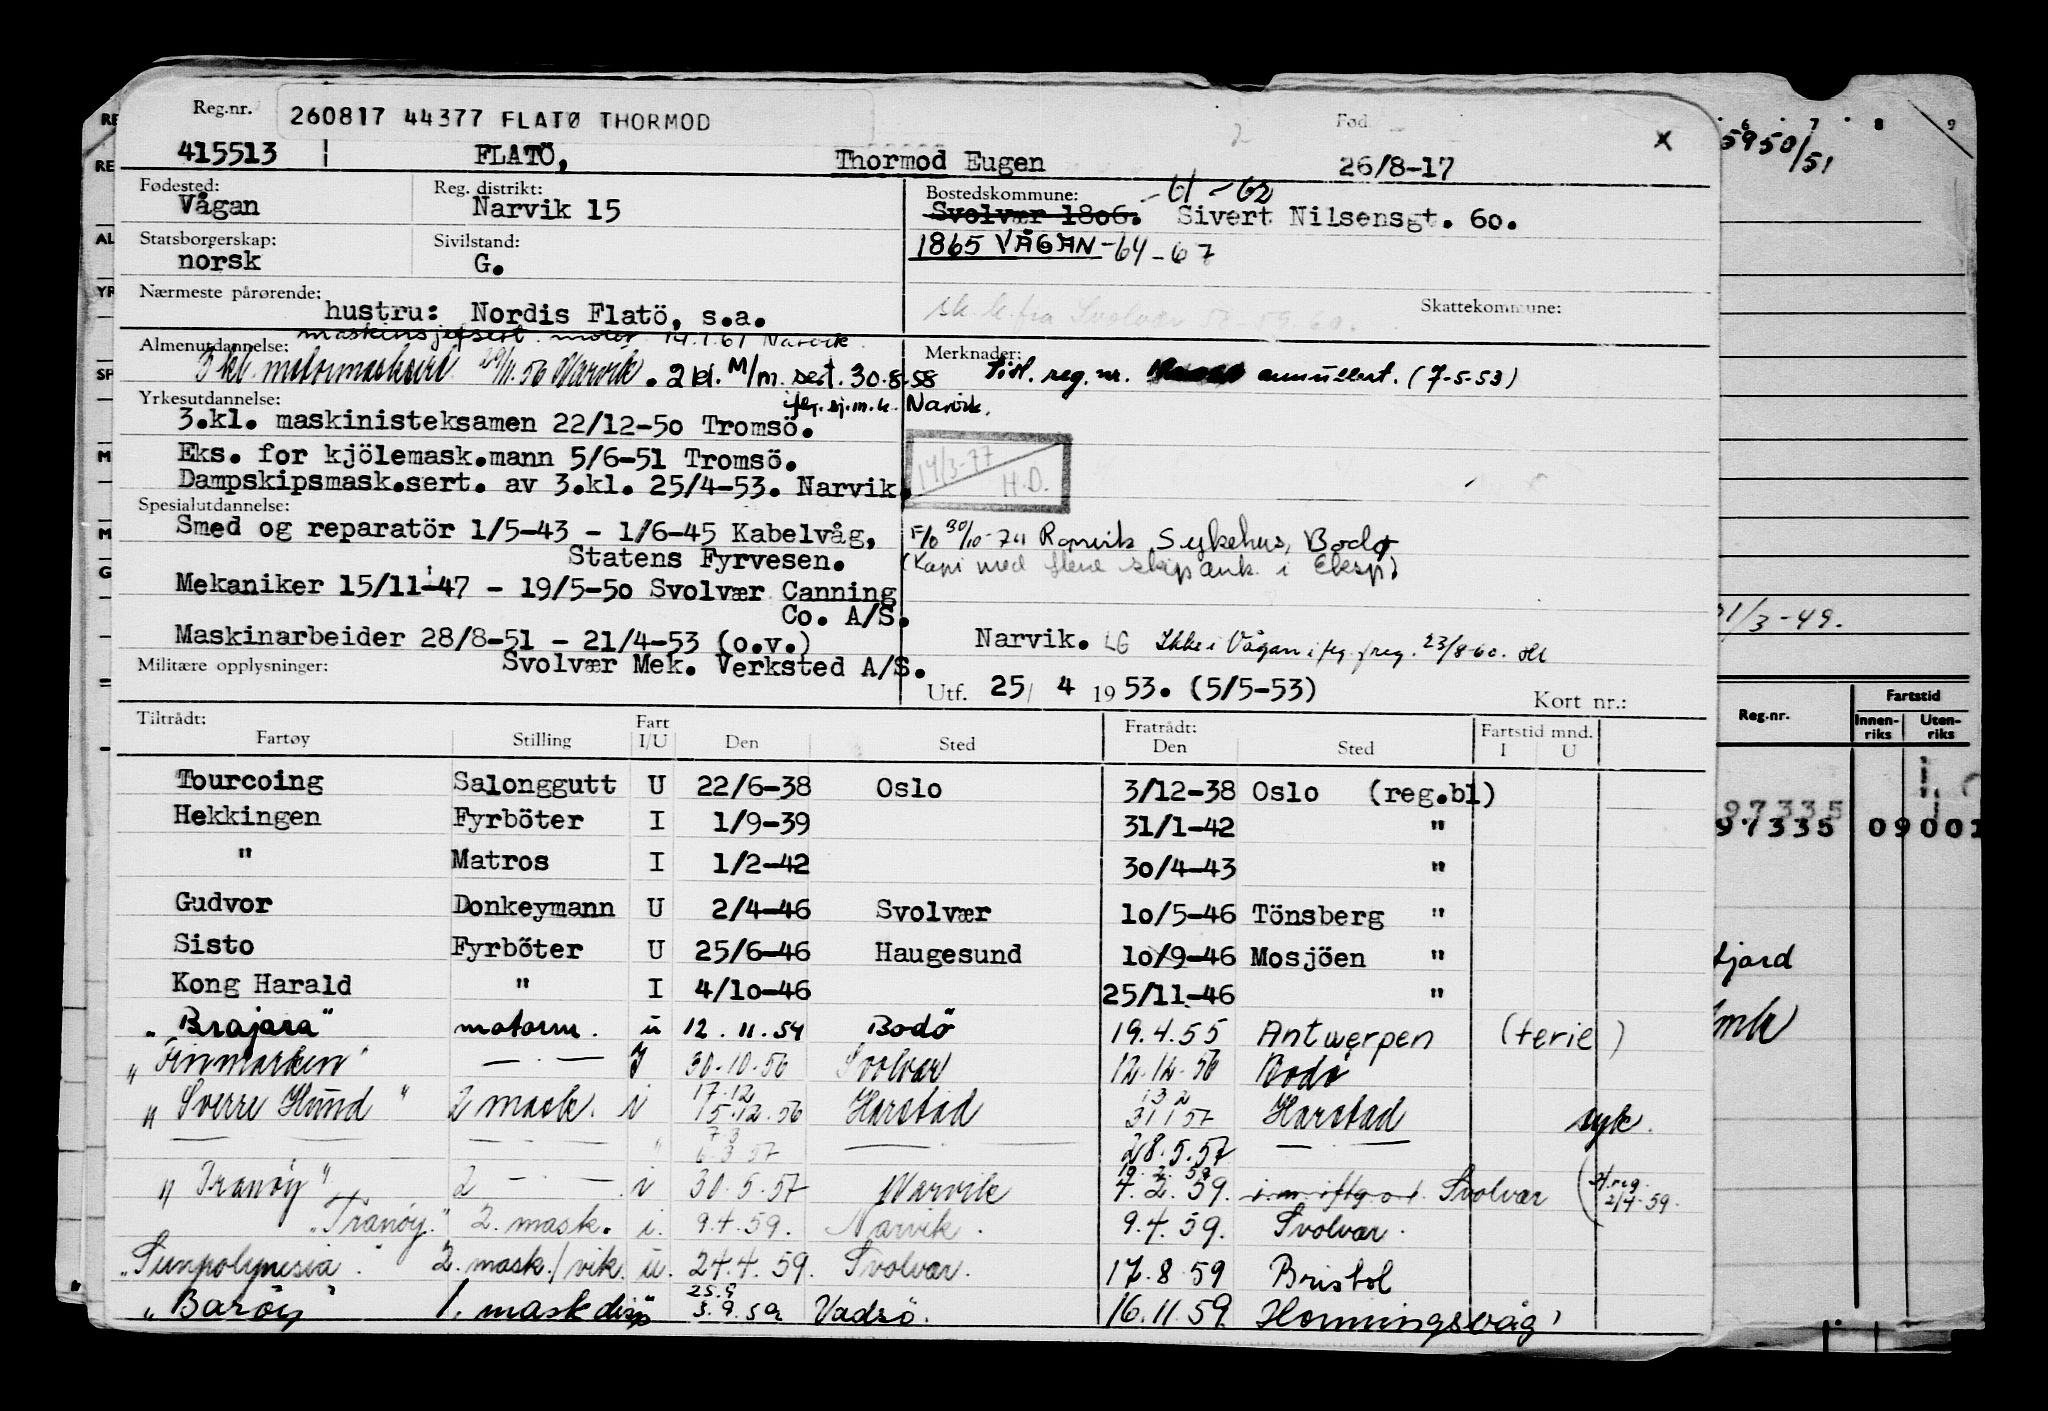 Reg.nr.
260817 44377 FLATØ THORMOD
Fød.
415513 FLATÖ, Thormod Eugen 26/8-17
x
Fødested: Vågan
Reg. distrikt: Narvik 15
Bostedskommune: -61-62
Svolvær 1806. Sivert Nilsensgt. 60.
1865 VÅGAN -64-67
Statsborgerskap: norsk
Sivilstand: G.
Nærmeste pårørende: hustru: Nordis Flatö, s.a.
sk.k. fra Svolvær 57 59.60.
Skattekommune:
14.1.61 Narvik.
Almenutdannelse: 3 kl. 29/11.56 Narvik. 2 kl. M/m. sert. 30.8.58
Narvik.
Merknader: Tidl. reg. nr. annullert. (7-5-53)
Yrkesutdannelse:
3.kl. maskinisteksamen 22/12-50 Tromsö.
Eks. for kjölemask.mann 5/6-51 Tromsö.
Dampskipsmask.sert. av 3.kl. 25/4-53. Narvik.
14/3-77 H.D.
Spesialutdannelse:
Smed og reparatör 1/5-43 - 1/6-45 Kabelvåg,
Statens Fyrvesen.
Mekaniker 15/11-47 - 19/5-50 Svolvær Canning
Co. A/S.
Maskinarbeider 28/8-51 - 21/4-53 (o.v.)
Svolvær Mek. Verksted A/S.
F/0 30/10-74 Rønvik Sykehus, Bodø
(Kopi med flere skip ank. i Eksp)
Narvik. LG Ikke i Vågan 23/8-60.
Militære opplysninger:
Utf. 25/ 4 1953. (5/5-53)
Kort nr.:
Tiltrådt: Fartøy Stilling Fart I/U Den Sted Fratrådt: Den Sted Fartstid mnd. I U
Tourcoing Salonggutt U 22/6-38 Oslo 3/12-38 Oslo (reg.bl)
Hekkingen Fyrböter I 1/9-39 31/1-42 "
" Matros I 1/2-42 30/4-43 "
Gudvor Donkeymann U 2/4-46 Svolvær 10/5-46 Tönsberg "
Sisto Fyrböter U 25/6-46 Haugesund 10/9-46 Mosjöen "
Kong Harald " I 4/10-46 25/11-46 "
"Brajara" motorm. u 12.11.54 Bodö 19.4.55 Antwerpen (ferie)
"Finmarken" — . — I 30.10.56 Svolvær 12.12.56 Bodö
17.12 13 2
"Sverre Hund" 2 mask. i 15.12.56 Harstad 31 1 57 Harstad syk.
7 3
— — — — . — " 6 3 57 — 28.5.57 — . —
19.2.58
"Tranöy" 2 — . — i 30.5.57 Narvik 7.2.59. Svolvær
2/4-59.
"Tranöy." 2. mask. i. 9.4.59. Narvik. 9.4.59. Svolvær.
"Sunpolynesia". 2. mask./vik. u. 24.4.59. Svolvær. 17.8.59 Bristol
25.9
"Baröy" 1. mask disp 3.9.59 Vadsö. 16.11.59. Honningsvåg
6 7 8 9
5950/51
31/3-49.
Reg.nr. Fartstid
Innen-riks Uten-riks
97335
97335 09 001
fjord
RE
RE
AL
YR
SP
M
M
G